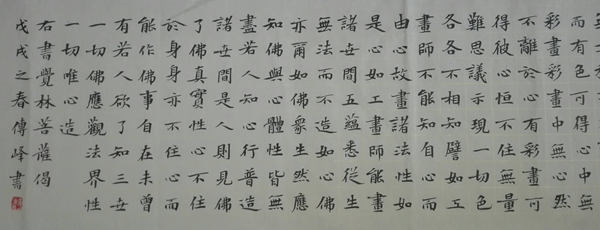 而有色可得心中無
彩畫彩畫中無心然
不離於心有彩畫可
得彼心恒不住無量
難思議示現一切色
各各不相知譬如工
畫師不能知自心而
由心故畫諸法性如
是心如工畫師能畫
諸世間五蘊悉從生
無法而不造如心佛
亦爾如佛眾生然應
知佛與心體性皆無
盡若人知心行普造
諸世間是人則見佛
了佛真實性心不住
於身身亦不住心而
能作佛事自在未曾
有若人欲了知三世
一切佛應觀法界性
一切唯心造
右書覺林菩薩偈
戊戌之春傅峰書